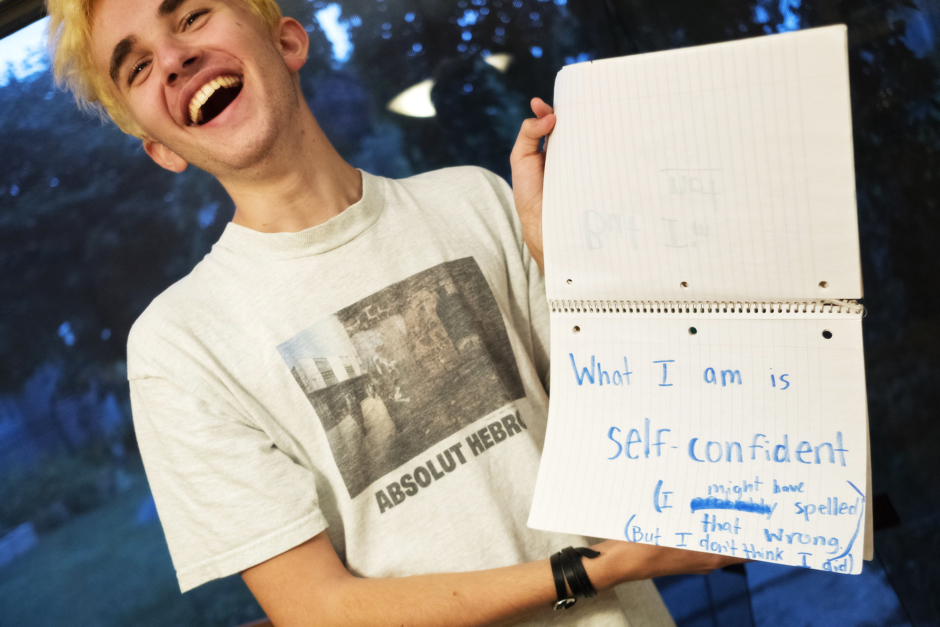 But I'm
not
What I am is
self-confident
(I might have spelled
that wrong)
(But I don't think I did)
ABSOLUT HEBRO